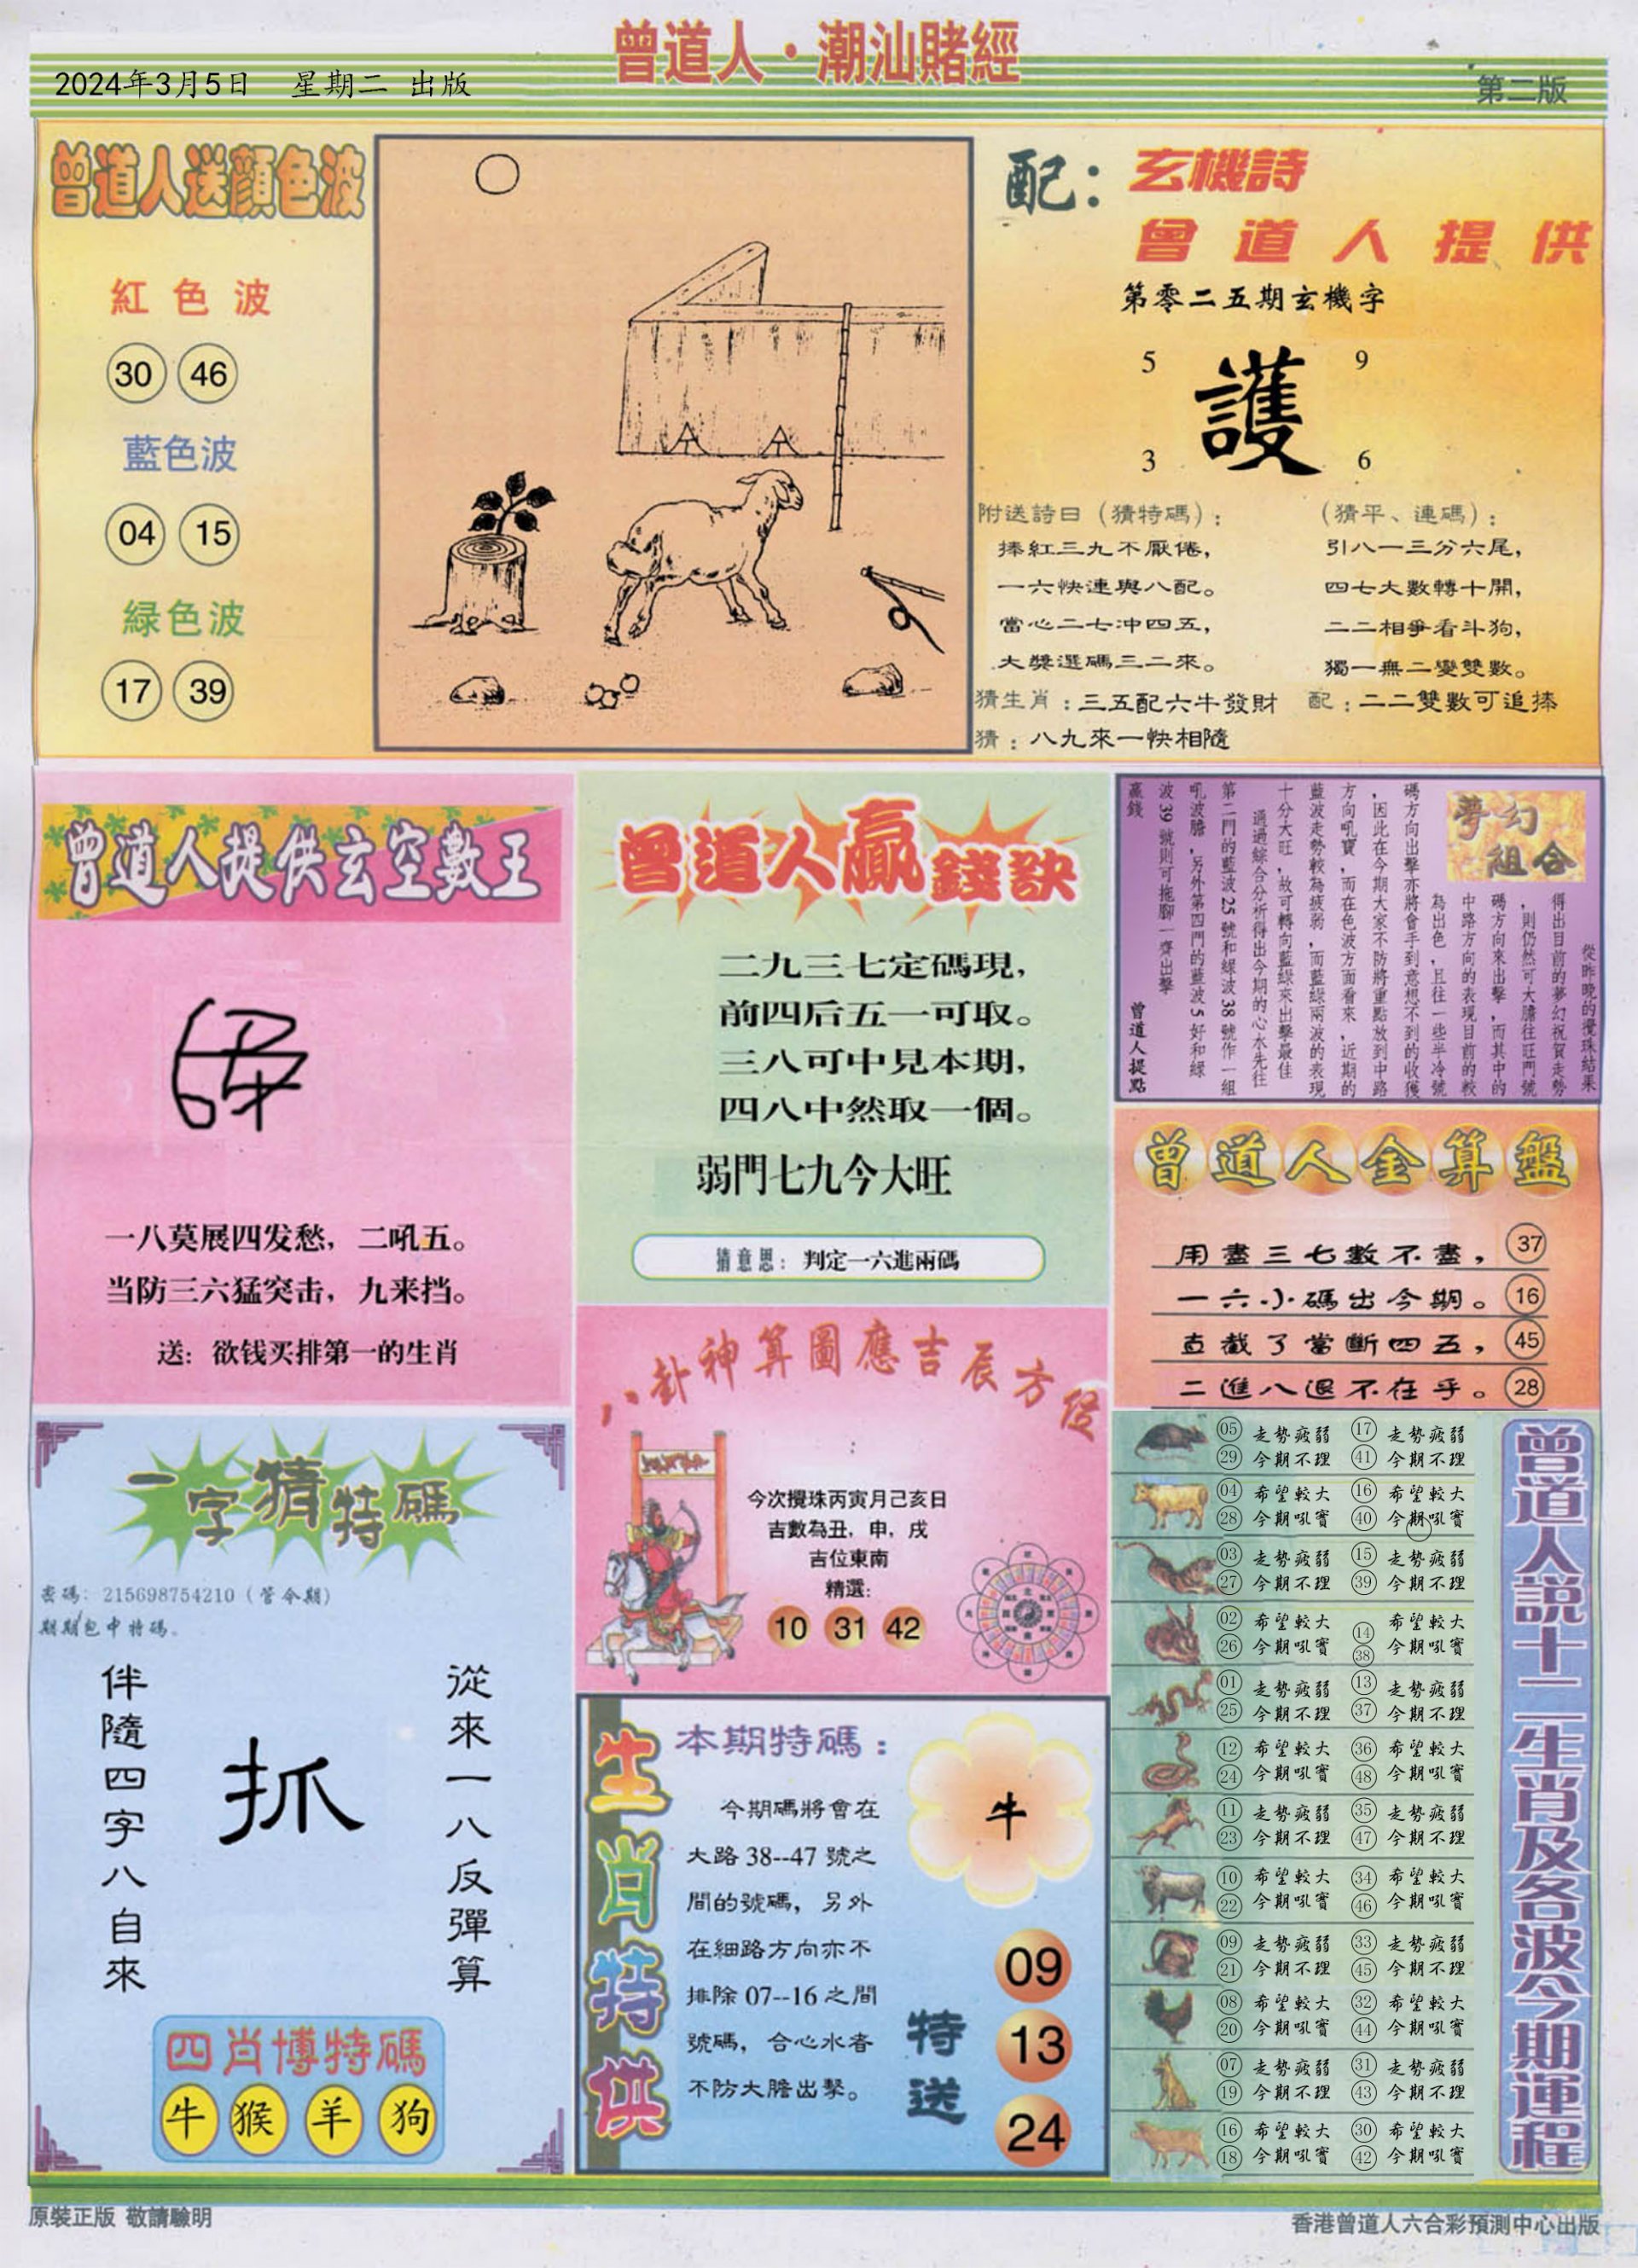 曾道人·潮汕賭經
2024年3月5日 星期二 出版
第二版
曾道人送顔色波
紅色波
30 46
藍色波
04 15
緑色波
17 39
配：玄機詩
曾道人提供
第零二五期玄機字
5 9
護
3 6
附送詩日（猜特碼）：
捧紅三九不厭倦，
一六快連與八配。
當心二七冲四五，
大獎選碼三二來。
（猜平、連碼）：
引八一三分六尾，
四七大數轉十開，
二二相爭看斗狗，
獨一無二變雙數。
猜生肖：三五配六牛發財
配：二二雙數可追捧
猜：八九來一快相隨
曾道人提供玄空數王
一八莫展四发愁，二吼五。
当防三六猛突击，九来挡。
送：欲钱买排第一的生肖
曾道人贏錢訣
二九三七定碼現，
前四后五一可取。
三八可中見本期，
四八中然取一個。
弱門七九今大旺
猜意思：判定一六進兩碼
夢幻
組合
從昨晚的攪珠結果
得出目前的夢幻祝賀走勢
，則仍然可大膽往旺門號
碼方向來出擊，而其中的
中路方向的表現目前的較
為出色，且往一些半冷號
碼方向出擊亦將會手到意想不到的收獲
，因此在今期大家不防將重點放到中路
方向吼寶，而在色波方面看來，近期的
藍波走勢較為疲弱，而藍緑兩波的表現
十分大旺，故可轉向藍緑來出擊最佳
通過綜合分析得出今期的心水先往
第二門的藍波25號和緑波38號作一組
吼波膽，另外第四門的藍波5好和緑
波39號則可拖脚一齊出擊
贏錢
曾道人提點
曾道人金算盤
用盡三七數不盡， 37
一六小碼出今期。 16
直截了當斷四五， 45
二進八退不在乎。 28
八卦神算圖應吉辰方位
今次攪珠丙寅月己亥日
吉數為丑，申，戌
吉位東南
精選：
10 31 42
一字猜特碼
密碼：215698754210（管今期）
期期包中特碼。
從來一八反彈算
抓
伴隨四字八自來
四肖博特碼
牛 猴 羊 狗
生肖特供
本期特碼：
今期碼將會在
大路38--47號之
間的號碼，另外
在細路方向亦不
排除07--16之間
號碼，合心水者
不防大膽出擊。
牛
特送
09
13
24
曾道人説十二生肖及各波今期運程
05 走勢疲弱 17 走勢疲弱
29 今期不理 41 今期不理
04 希望較大 16 希望較大
28 今期吼寳 40 今期吼寳
03 走勢疲弱 15 走勢疲弱
27 今期不理 39 今期不理
02 希望較大 14 希望較大
26 今期吼寳 38 今期吼寳
01 走勢疲弱 13 走勢疲弱
25 今期不理 37 今期不理
12 希望較大 36 希望較大
24 今期吼寳 48 今期吼寳
11 走勢疲弱 35 走勢疲弱
23 今期不理 47 今期不理
10 希望較大 34 希望較大
22 今期吼寳 46 今期吼寳
09 走勢疲弱 33 走勢疲弱
21 今期不理 45 今期不理
08 希望較大 32 希望較大
20 今期吼寳 44 今期吼寳
07 走勢疲弱 31 走勢疲弱
19 今期不理 43 今期不理
16 希望較大 30 希望較大
18 今期吼寳 42 今期吼寳
原裝正版 敬請驗明
香港曾道人六合彩預測中心出版